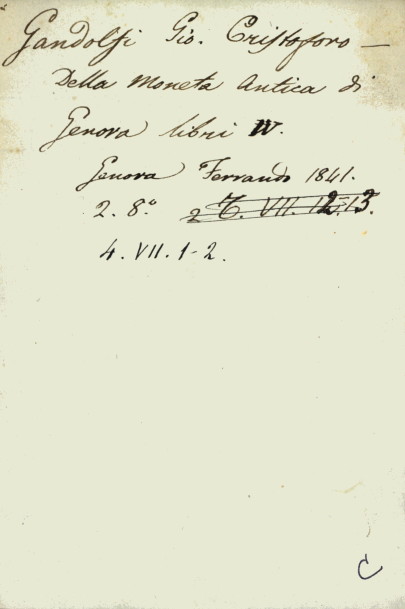 Gandolfi Gio. Cristoforo —
Della Moneta Antica di
Genova libri IV.
Genova Ferrando 1841.
2. 8.° 2 T. VII. 12.13.
4. VII. 1-2.
C